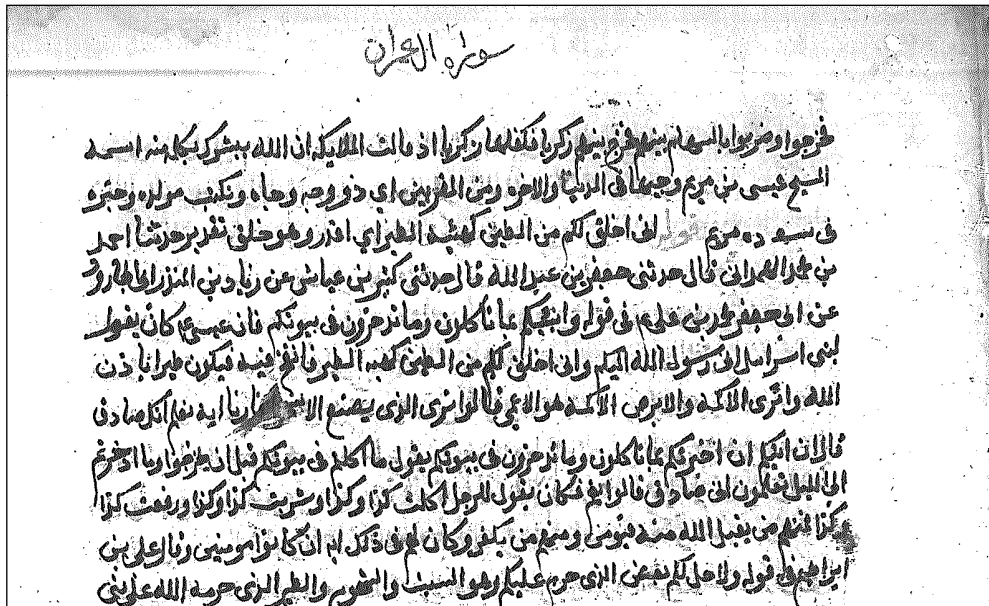 سوره ال عمران
فخرجوا وضربوا بالسهام بينهم فخرج بينهم زكريا فكفلها زكريا اذ قالت الملايكه ان الله يبشرك بكلمه منه اسمه
المسيح عيسى بن مريم وجيها فى الدنيا والاخره ومن المقربين اي ذو وجه وجاه ونكتب مولده وخبره
فى سوره مريم قوله انى اخلق لكم من الطين كهيئه الطير اي اقدر وهو خلق تقدير حدثنا احمد
بن محمد الهمدانى قال حدثنى جعفر بن عبد الله قال حدثنى كثير بن عياش عن زياد بن المنذر ابى الجارود
عن ابى جعفر محمد بن على م فى قوله وانبئكم بما تاكلون وما تدخرون فى بيوتكم فان عيسى ع كان يقول
لبنى اسرايل انى رسول الله اليكم وانى اخلق لكم من الطين كهيه الطير فانفخ فيه فيكون طيرا باذن
الله وابرى الاكمه والابرص الاكمه هو الاعمى قالوا نرى الذى يصنع الا ارنا ايه نعلم انك صادق
قال ان انبئكم ان اخبرتكم بما تاكلون وما تدخرون فى بيوتكم يقول ما اكلتم فى بيوتكم قبل ان تخرجوا وما ادخرتم
الى الليل تعلمون انى صادق قالوا نعم فكان يقول للرجل اكلت كذا وكذا وشربت كذا وكذا ورفعت كذا
كذا فمنهم من يقبل الله منه فيومن ومنهم من يكفر وكان لهم فى ذلك ايه ان كانوا مومنين وقال على بن
ابراهيم فى قوله ولاحل لكم بعض الذى حرم عليكم وهو السبت والشحوم والطير الذى حرمه الله على بنى